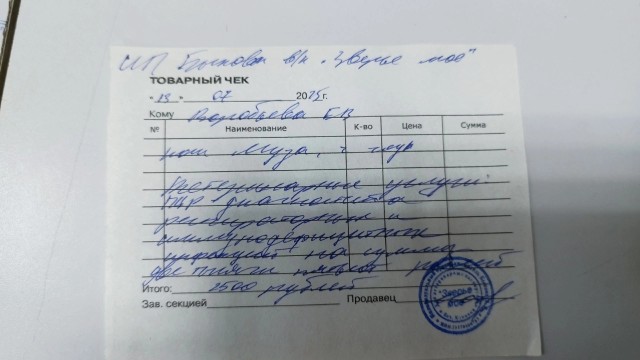 ИП Быкова в/к "Зверье мое"
ТОВАРНЫЙ ЧЕК
"19" 07 2025 г.
Кому Воробьева Е В
№ Наименование К-во Цена Сумма
кош Муза, 2 года
Ветеринарные услуги:
ПЦР диагностика
респираторных и
иммунодефицитных
инфекций на сумму
две тысячи пятьсот рублей
Итого: 2500 рублей
Зав. секцией Продавец